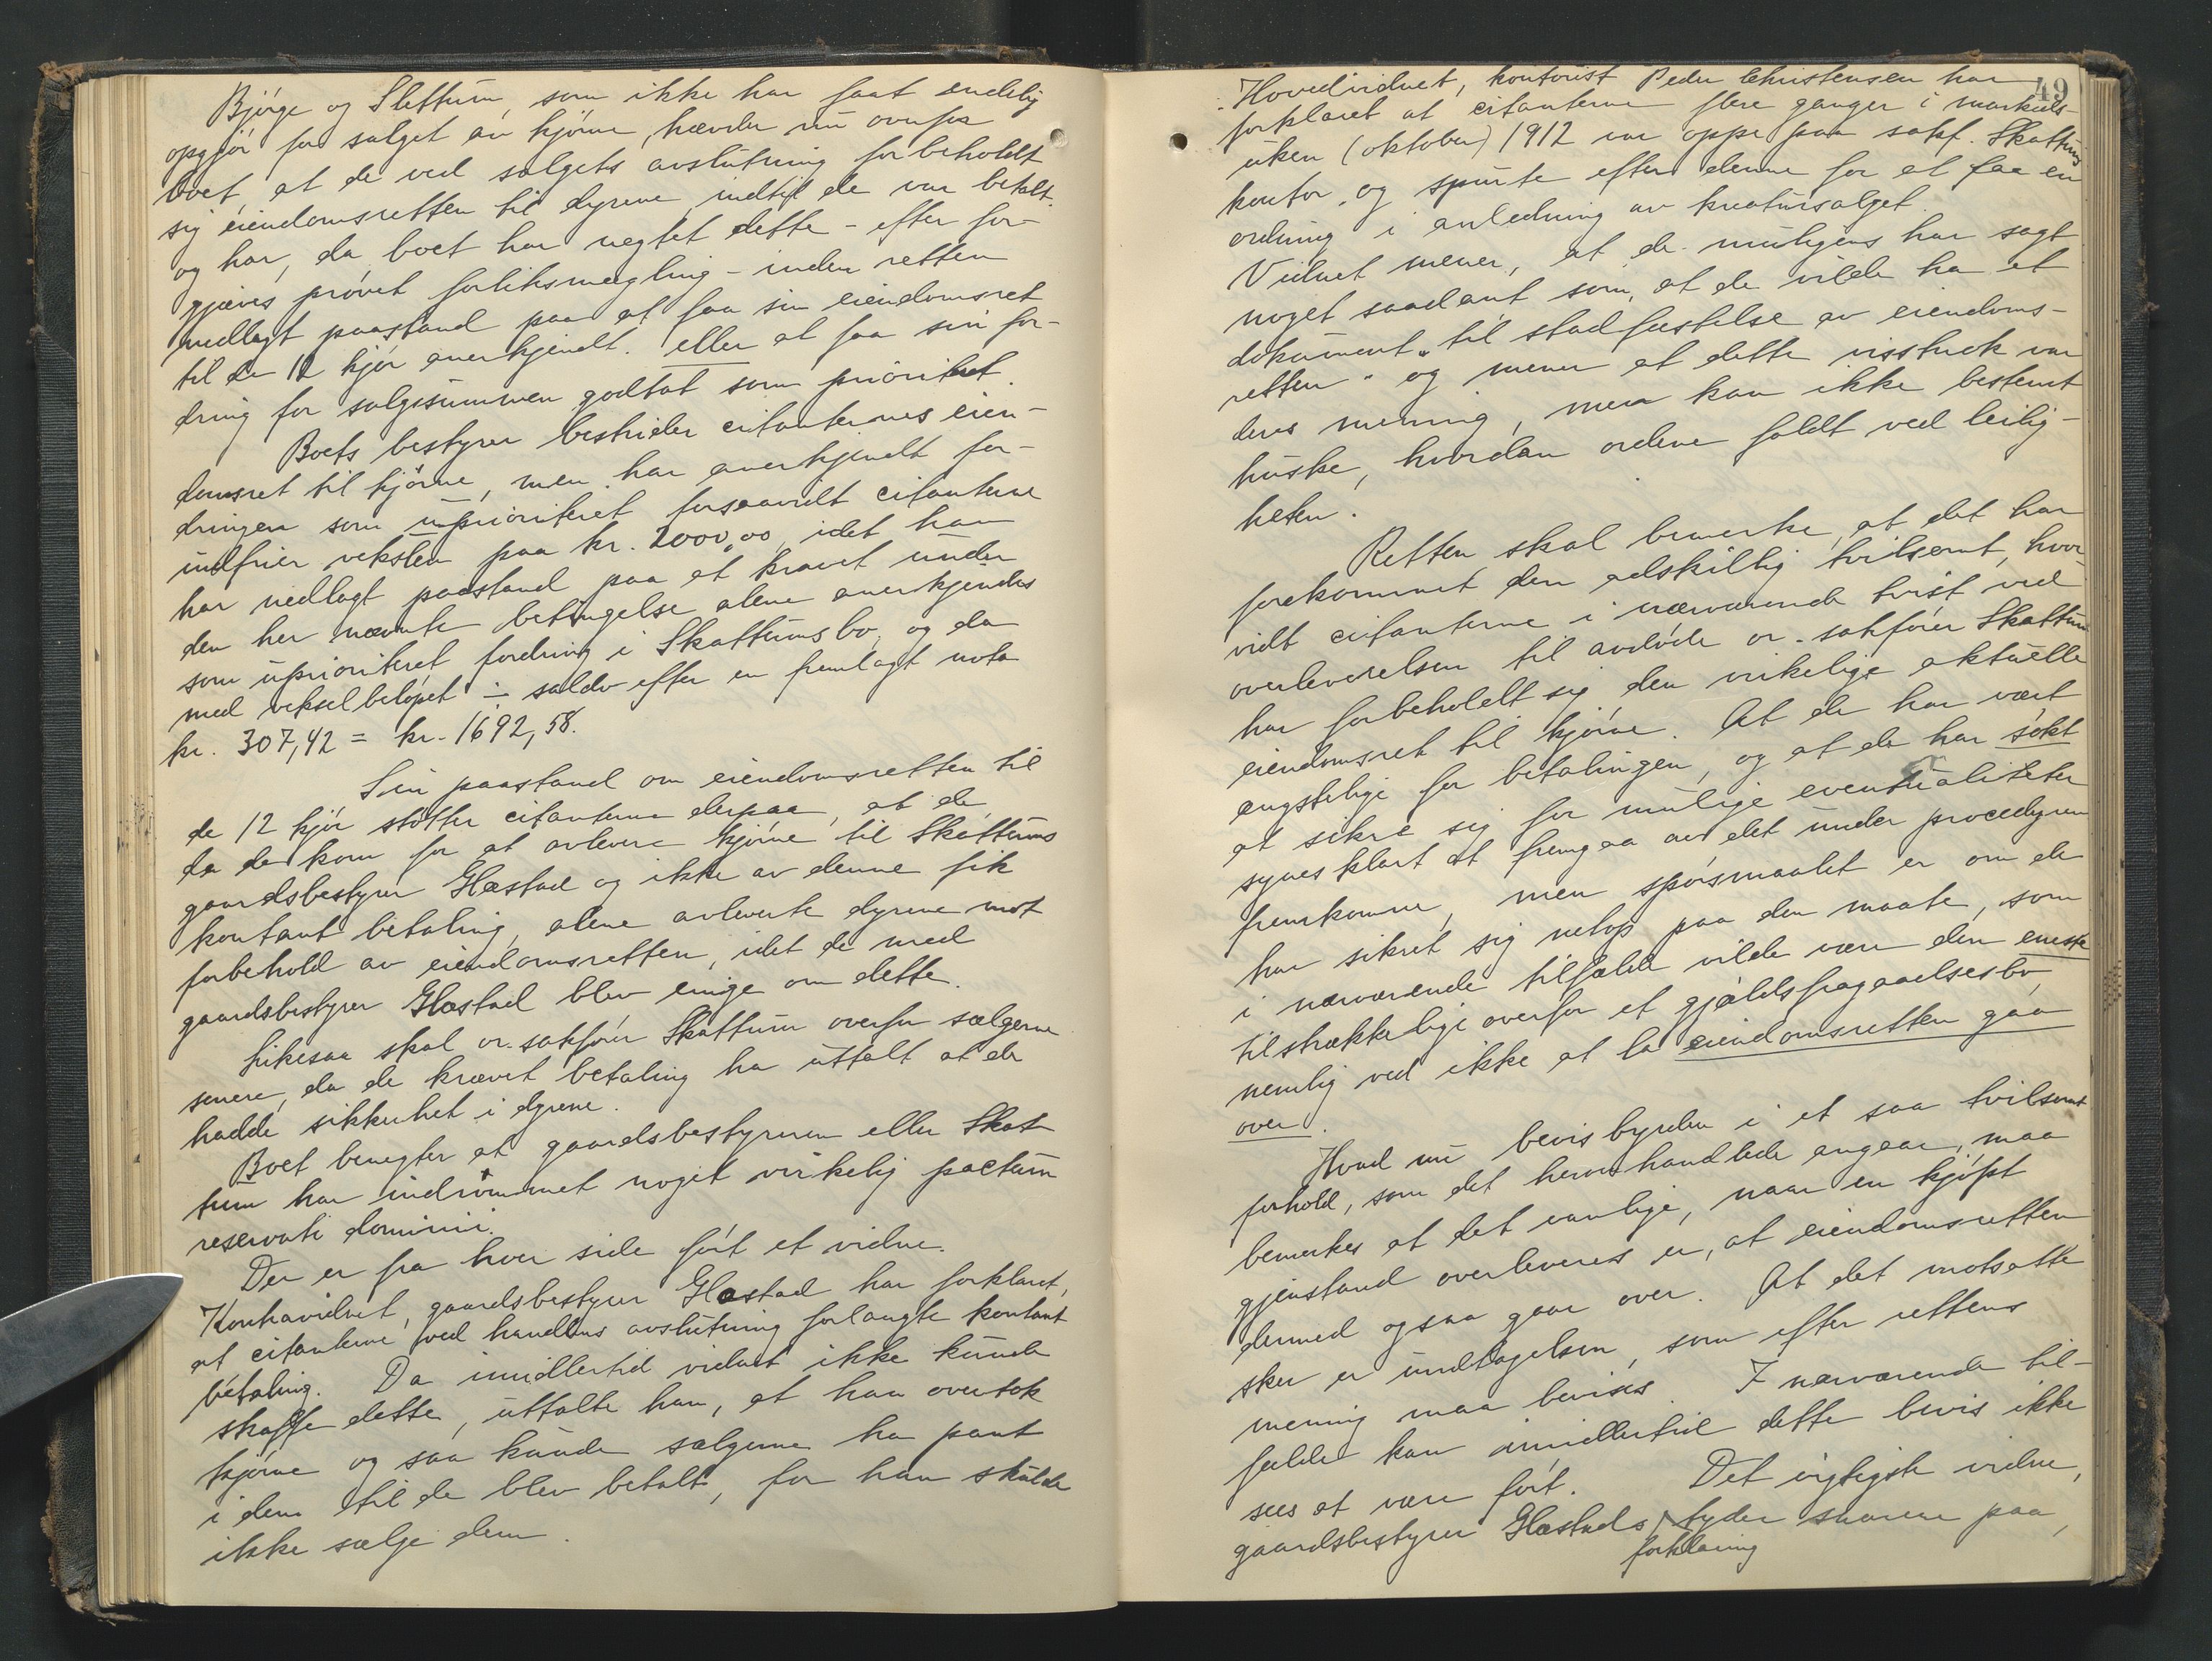 Bjørge og Slettum, som ikke har faat endelig
opgjör for salget av kjörne, hævder nu overfor
boet, at de ved salgets avslutning forbeholdt
sig eiendomsretten til dyrene, indtil de var betalt.
og har, da boet har negtet dette - efter for-
gjæves prövet forliksmegling - inden retten
nedlagt paastand paa at faa sin eiendomsret
til de 12 kjör anerkjendt. eller at faa sin for-
dring for salgssummen godtat som prioritert.
Boets bestyrer bestrider citanternes eien-
domsret til kjörne, men har anerkjendt for-
dringen som uprioriteret forsaavidt citanterne
indfrier vekslen paa kr. 2000,00, idet han
har nedlagt paastand paa at kravet under
den her nævnte betingelse alene anerkjendes
som uprioriteret fordring i Skattums bo, og da
med vekselbelöpet ÷ saldo efter en fremlagt nota
kr. 307,42 = kr. 1692,58.
Sin paastand om eiendomsretten til
de 12 kjör stötter citanterne derpaa, at de,
da de kom for at avlevere kjörne til Skattums
gaardsbestyrer Glæstad og ikke av denne fik
kontant betaling, alene avleverte dyrene mot
forbehold av eiendomsretten, idet de med
gaardsbestyrer Glæstad blev enige om dette.
Likesaa skal or. sakförer Skattum overfor sælgerne
senere, da de krævet betaling ha uttalt at de
hadde sikkerhet i dyrene.
Boet benegter at gaardsbestyreren eller Skat
tum har indrömmet noget virkelig pactum
reservati dominii.
Der er fra hver side fört et vidne.
Kontravidnet, gaardsbestyrer Glæstad har forklart,
at citanterne ved handlens avslutning forlangte kontant
betaling. Da imidlertid vidnet ikke kunde
skaffe dette, uttalte han, at han overtok
kjörne og saa kunde sælgerne ha pant
i dem til de blev betalt, for han skulde
ikke sælge dem.
49
Hovedvidnet, kontorist Peder Christensen har
forklaret at citanterne flere ganger i markeds-
uken (oktober) 1912 var oppe paa sakf. Skattums
kontor og spurte efter denne for at faa en
ordning i anledning av kreatursalget.
Vidnet mener, at de muligens har sagt
noget saadant som, at de vilde ha et
dokument "til stadfæstelse av eiendoms-
retten" og mener at dette visstnok var
deres mening, men kan ikke bestemt
huske, hvordan ordene faldt ved leilig-
heten.
Retten skal bemerke, at det har
forekommet den adskillig tvilsomt, hvor-
vidt citanterne i nærværende tvist ved
overleverelsen til avdöde or. sakförer Skattum
har forbeholdt sig den virkelige aktuelle
eiendomsret til kjörne. At de har vært
ængstelige for betalingen, og at de har sökt
at sikre sig for mulige eventualiteter
synes klart at fremgaa av det under proceduren
fremkomne, men spörsmaalet er om de
har sikret sig netop paa den maate, som
i nærværende tilfælde vilde være den eneste
tilstrækkelige overfor et gjældsfragaaelsesbo,
nemlig ved ikke at la eiendomsretten gaa
over.
Hvad nu bevisbyrden i et saa tvilsomt
forhold, som det heromhandlede angaar, maa
bemerkes at det vanlige, naar en kjöpt
gjenstand overleveres er, at eiendomsretten
dermed ogsaa gaar over. At det motsatte
sker er undtagelsen, som efter rettens
mening maa bevises. I nærværende til-
fælde kan imidlertid dette bevis ikke
sees at være fört. Det vigtigste vidne,
gaardsbestyrer Glæstads tyder snarere paa,
forklaring